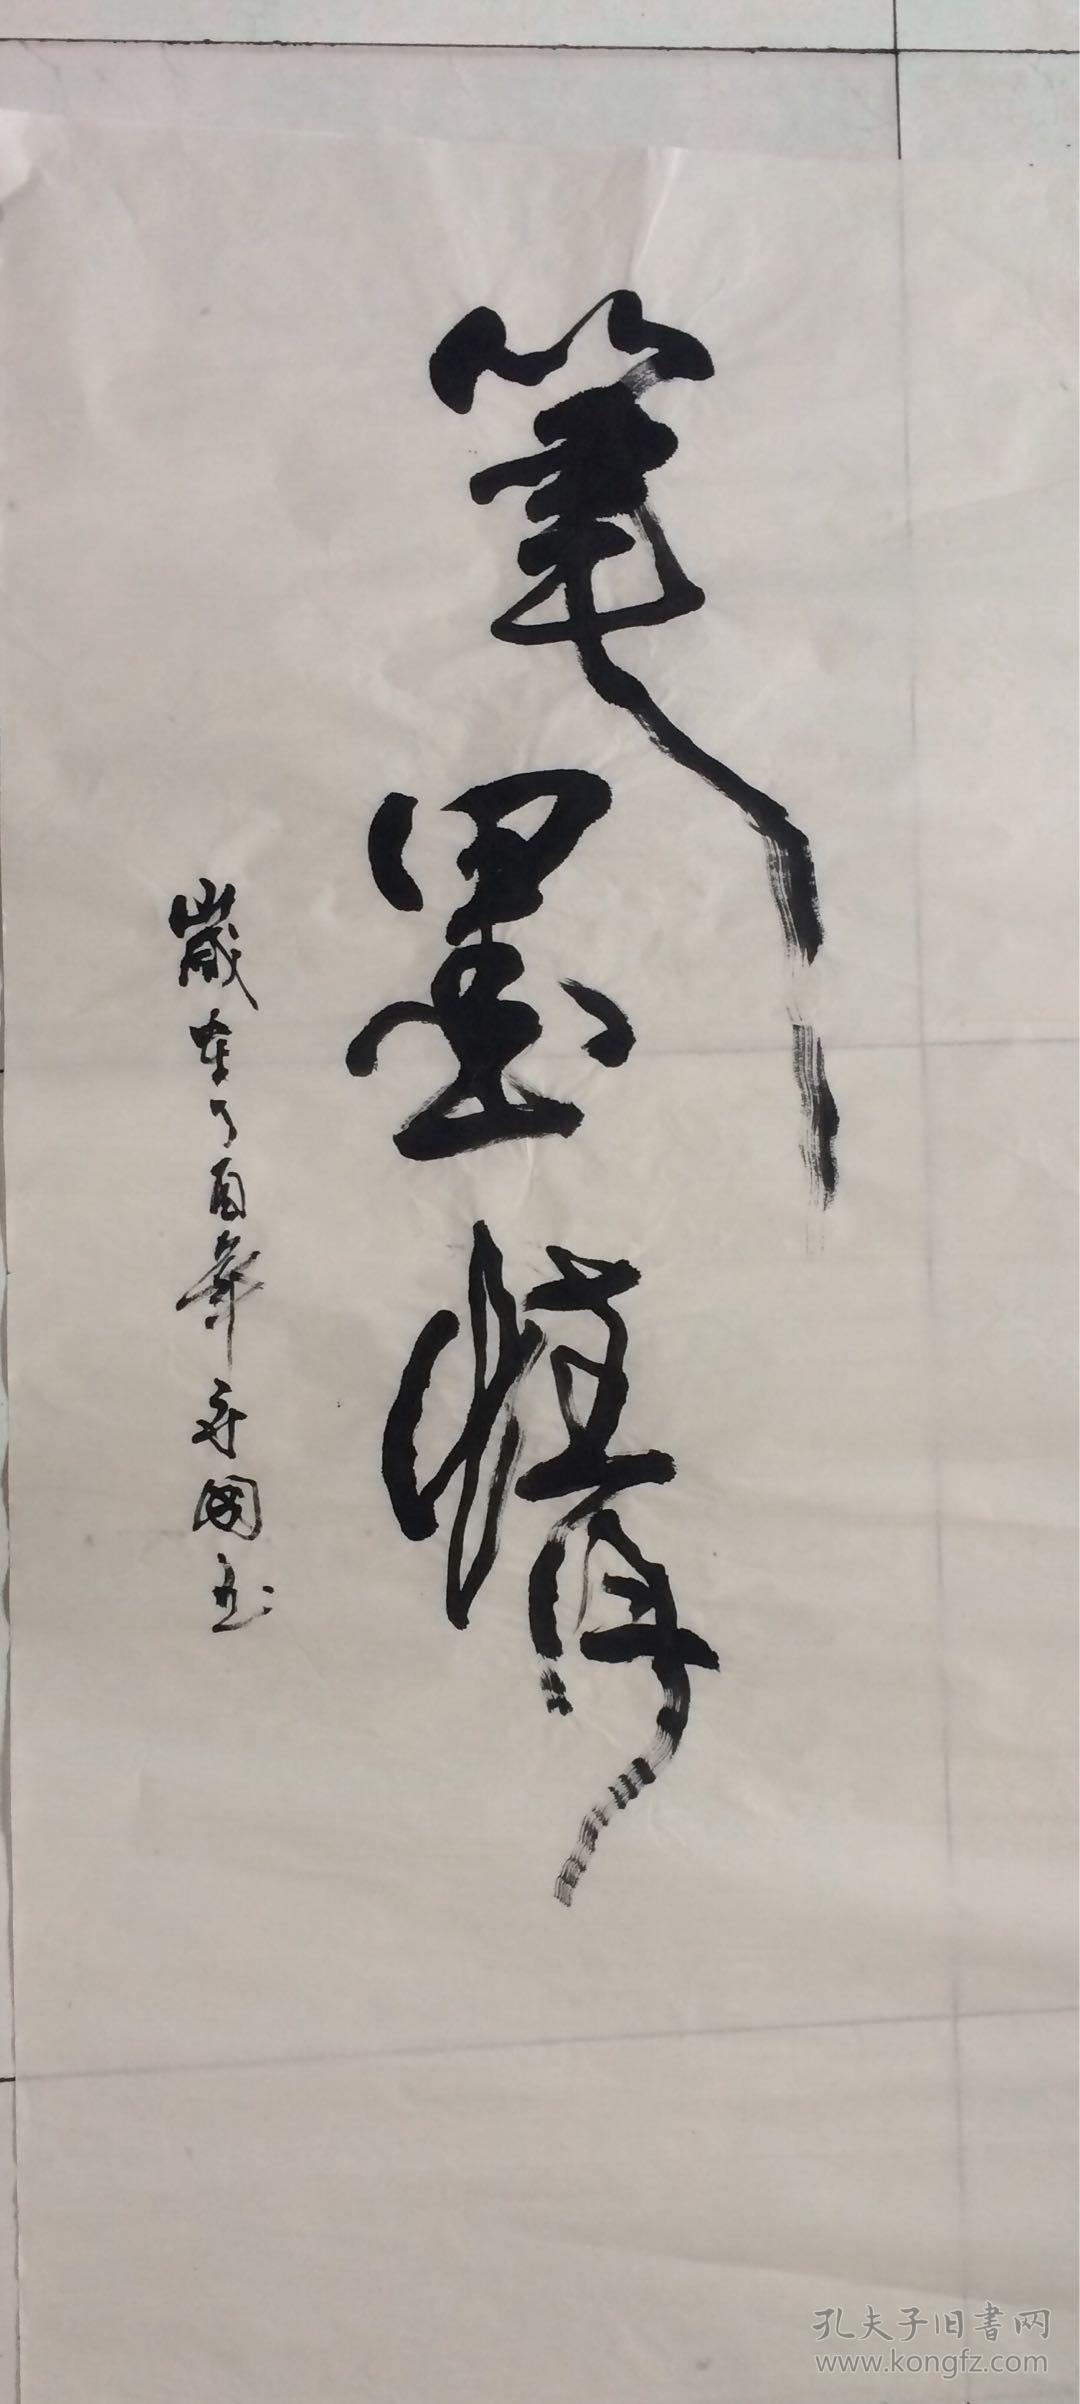 筆墨情
歲在丁酉年 國書
孔夫子旧書网
www.kongfz.com